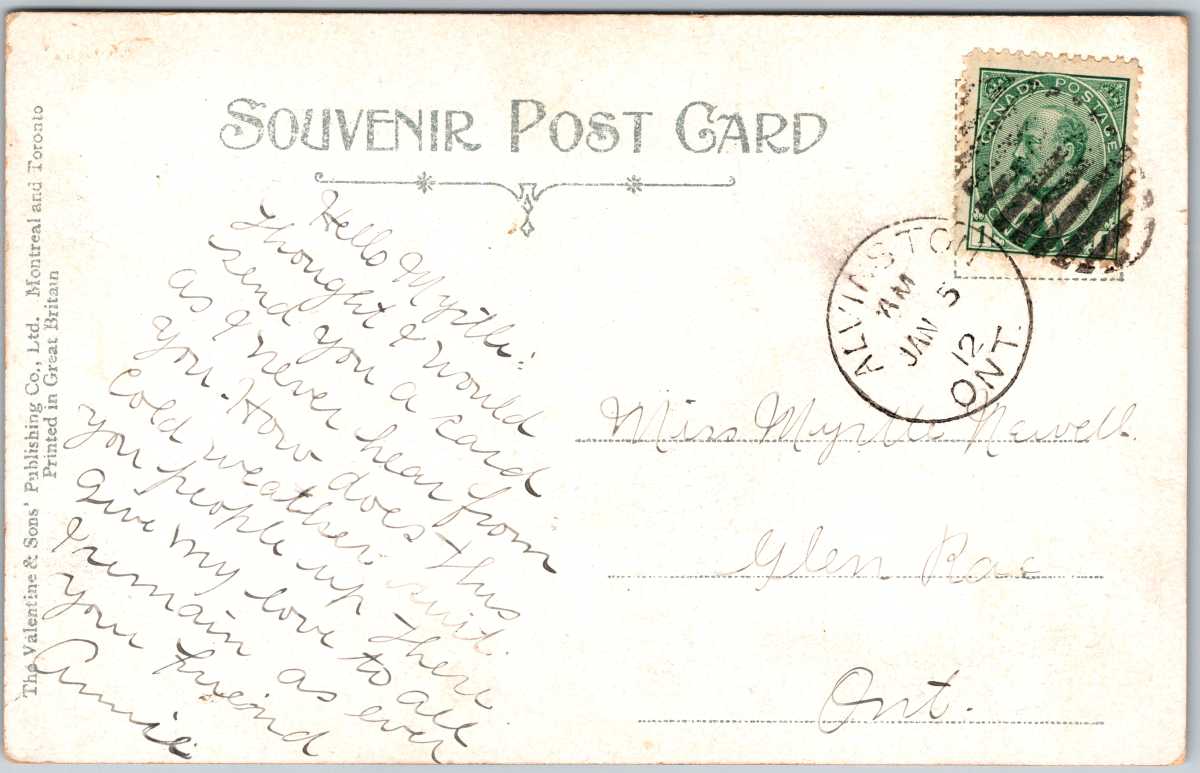 SOUVENIR POST CARD
The Valentine & Sons' Publishing Co., Ltd. Montreal and Toronto
Printed in Great Britain
CANADA POSTAGE
1
ALVINSTON
AM
JAN 5
12
ONT.
Hello Myrtle:
thought I would
send you a card
as I never hear from
you. How does this
cold weather suit
you people up there
Give my love to all
I remain as ever
your freind
Annie
Miss Myrtle Newell.
Glen Rae
Ont.